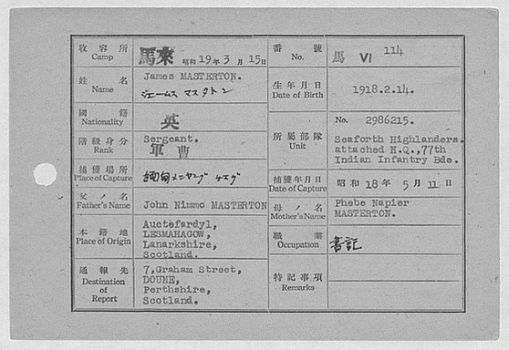 收容所
Camp
馬來 昭和19年3月15日
番號
No.
馬 VI 114
姓名
Name
James MASTERTON.
ジェームス マスタトン
生年月日
Date of Birth
1918.2.14.
國籍
Nationality
英
階級身分
Rank
Sergeant.
軍曹
所屬部隊
Unit
No. 2986215.
Seaforth Highlanders.
attached H.Q.,77th
Indian Infantry Bde.
捕獲場所
Place of Capture
緬甸
捕獲年月日
Date of Capture
昭和18年5月11日
父ノ名
Father's Name
John Nimmo MASTERTON
母ノ名
Mother's Name
Phebe Napier
MASTERTON.
本籍地
Place of Origin
Auctefardyl,
LESMAHAGOW,
Lanarkshire,
Scotland.
職業
Occupation
書記
通報先
Destination
of
Report
7,Graham Street,
DOUNE,
Perthshire,
Scotland.
特記事項
Remarks